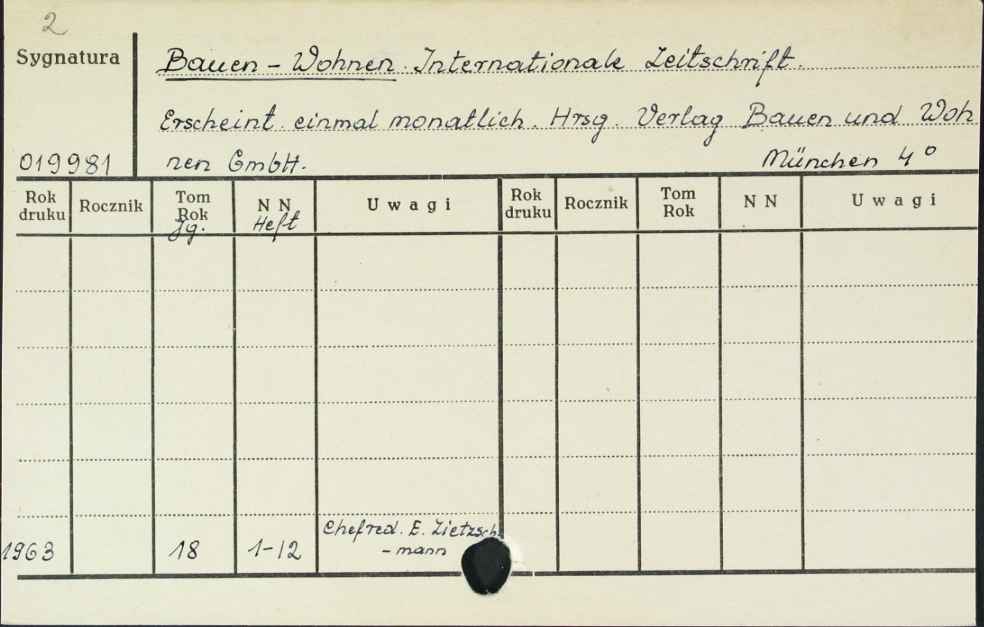 2
Sygnatura
Bauen - Wohnen. Internationale Zeitschrift.
Erscheint einmal monatlich. Hrsg. Verlag Bauen und Woh
019981
nen GmbH.
München 4°
Rok druku Rocznik Tom Rok N N U w a g i Rok druku Rocznik Tom Rok N N U w a g i
Jg. Heft
Chefred. E. Zietzsch
1963 18 1-12 - mann